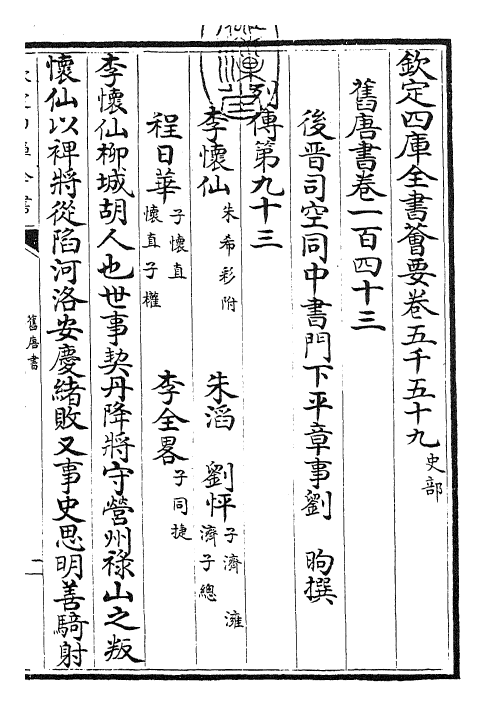 欽定四庫全書薈要卷五千五十九 史部
舊唐書卷一百四十三
後晉司空同中書門下平章事劉 昫撰
列傳第九十三
李懷仙 朱希彩附 朱滔 劉怦 子濟 澭 濟子總
程日華 子懷直 懷直子權 李全畧 子同捷
李懷仙柳城胡人也世事契丹降將守營州祿山之叛
懷仙以裨將從陷河洛安慶緒敗又事史思明善騎射
舊唐書